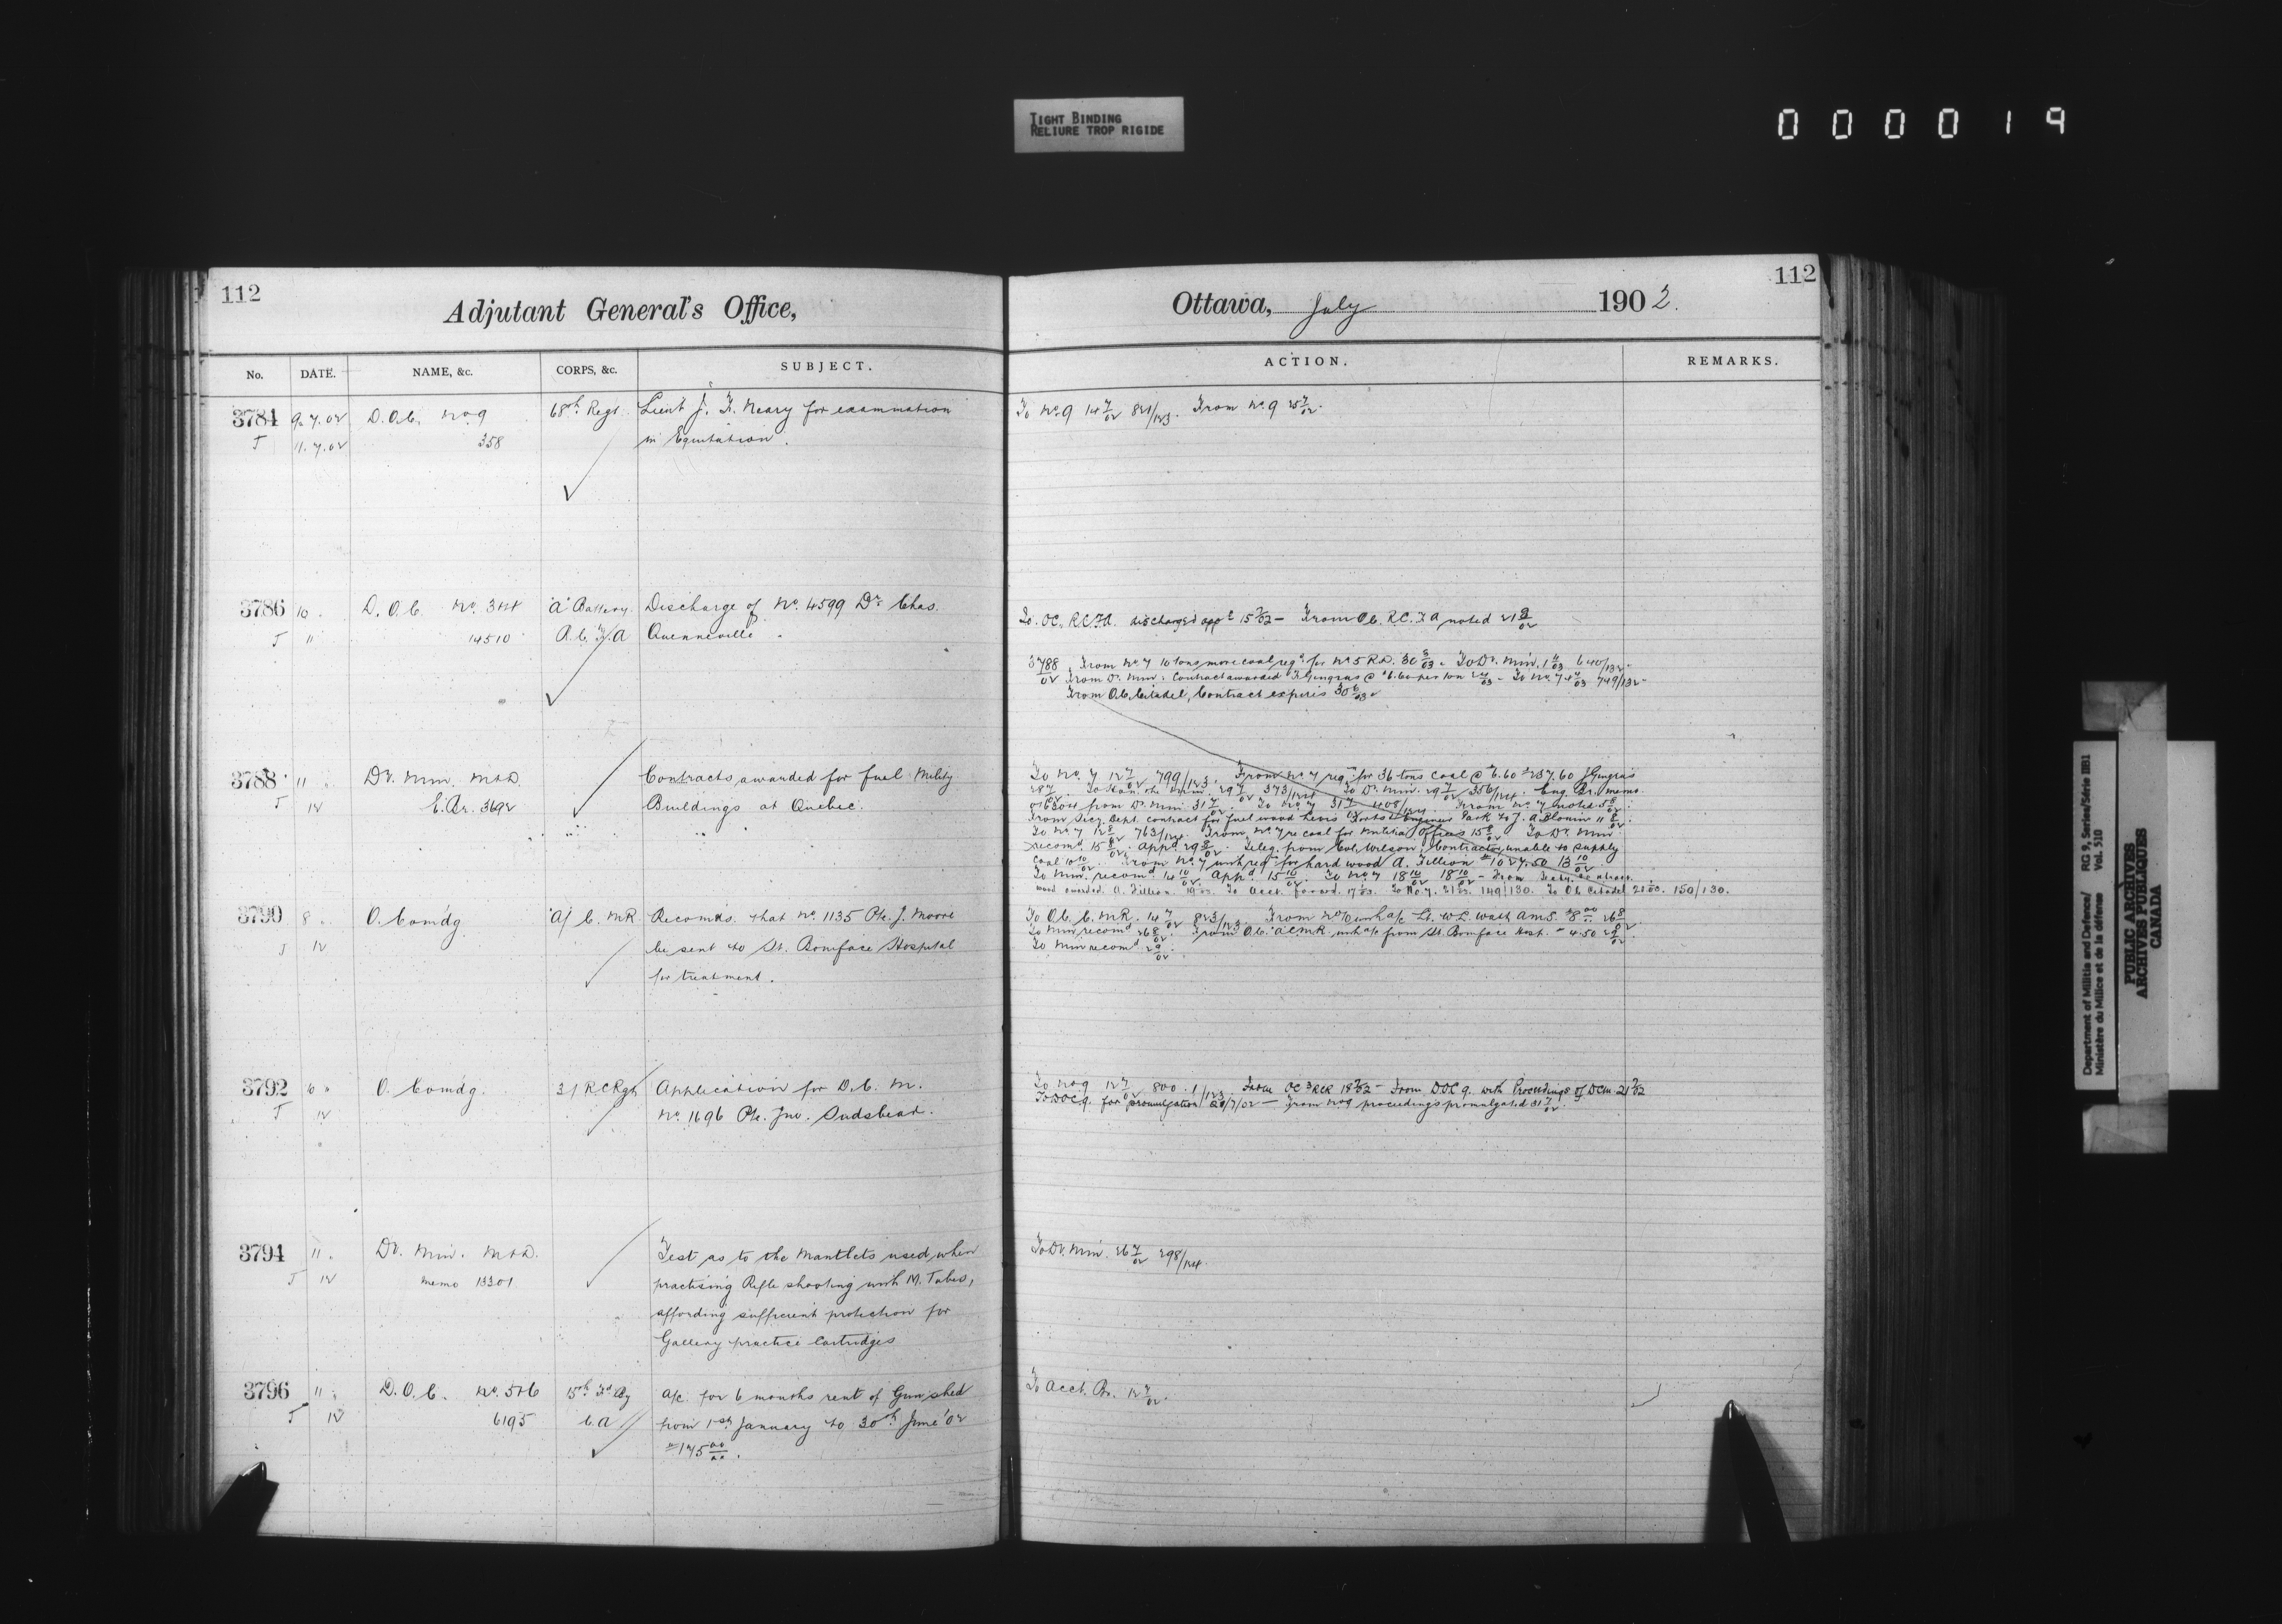 TIGHT BINDING
RELIURE TROP RIGIDE
000019
112
Adjutant General's Office,
No. DATE. NAME, &c. CORPS, &c. SUBJECT.
3784 9.7.02 D.O.C. No. 9 68th Regt. Lieut J. F. Neary for examination
J 11.7.02 358 in Equitation.
3786 10 D.O.C. No. 3+4 "A" Battery Discharge of No. 4599 Dr. Chas.
J 11 14510 R.C.F.A Quenneville.
3788 11 Dr. Min. M+D. Contracts awarded for fuel Military
J 12 E.Br. 3692 Buildings at Quebec.
3790 8 O. Comdg A/ C.M.R. Recomds. that No. 1135 Pte. J. Moore
J 12 be sent to St. Boniface Hospital
for treatment.
3792 10 " O. Comdg. 3/ R C Rgt Application for D.C.M.
J 12 No. 1696 Pte. Jno.
3794 11 Dr. Min. M+D. Test as to the Mantlets used when
J 12 memo 13301 practising Rifle shooting with M. Tubes,
affording sufficient protection for
Gallery practice Cartridges
3796 11 D.O.C. No. 5+6 15th Fd By a/c. for 6 months rent of Gun shed
J 12 6195 C.A from 1st January to 30th June '02
112
Ottawa, July 1902.
ACTION. REMARKS.
To No. 9 14 7/02 821/123. From No. 9 25 7/02.
To. OC. RCFA. discharged appd 15 7/02 - From O.C. R.C.F.A noted 21
3788/02 From No. 7 10 tons more coal reqd. for No. 5 R.D. 30 3/03. To Dr. Min. 1 4/03 640/132
From Dr. Min. Contract awarded F. Gingras @ per ton To No. 7 749/132
From O.C. Citadel, Contract expires 30 6/03
To No. 7 12 7/02 799/123. From No. 7 reqn. for 36 tons Coal @ 6.60 $237.60 J Gingras
To Dr. Min. 29 7/02 356/124. Eng. Br. memo.
from Dr. Min. 31 7/02. To No. 7 31 7/02 408/124. From No. 7 noted 5 8/02
From Secy. Dept. contract for fuel wood Levis Forts + Engineer Park to J. A Blouin 11 8/02
To No. 7 12 8/02 763/124. From No. 7 re coal for Militia Offices 15 8/02 To Dr. Min
recomd. 15 8/02. Appd 29 8/02. Teleg. from Col. Wilson, Contractor unable to supply
Coal 10 10/02. From No. 7 with reqn for hard wood A. Fillion $1027.50 13 10/02
To Min. recomd. 14 10/02. Appd. 15 10/02. To No. 7 18 10/02 18 10/02 - From
wood awarded A. Fillion. To Acct. forwd. To No. 7. 149/130. To O.C. Citadel 150/130.
To O.C. C.M.R. 14 7/02 823/123. From No. 10 with a/c Lt. W.L. Watt AMS. $8 00 26 8/02
To Min recomd 26 8/02. From O.C. "A" CMR with a/c from St. Boniface Hosp. 4.50
To Min recomd
To No. 9 12 7/02 800/123. From OC 3 RCR 18 7/02 - From DOC 9. with Proceedings of DCM 21 7/02
To DOC 9. for promulgation /7/02 - From No 9 proceedings promulgated 31 7/02
To Dr. Min. 26 7/02 298/124.
To Acct. Br. 12 7/02.
Department of Militia and Defence/ RG 9, Series/Série IIB1
Ministère du Milice et de la défense Vol. 510
PUBLIC ARCHIVES
ARCHIVES PUBLIQUES
CANADA